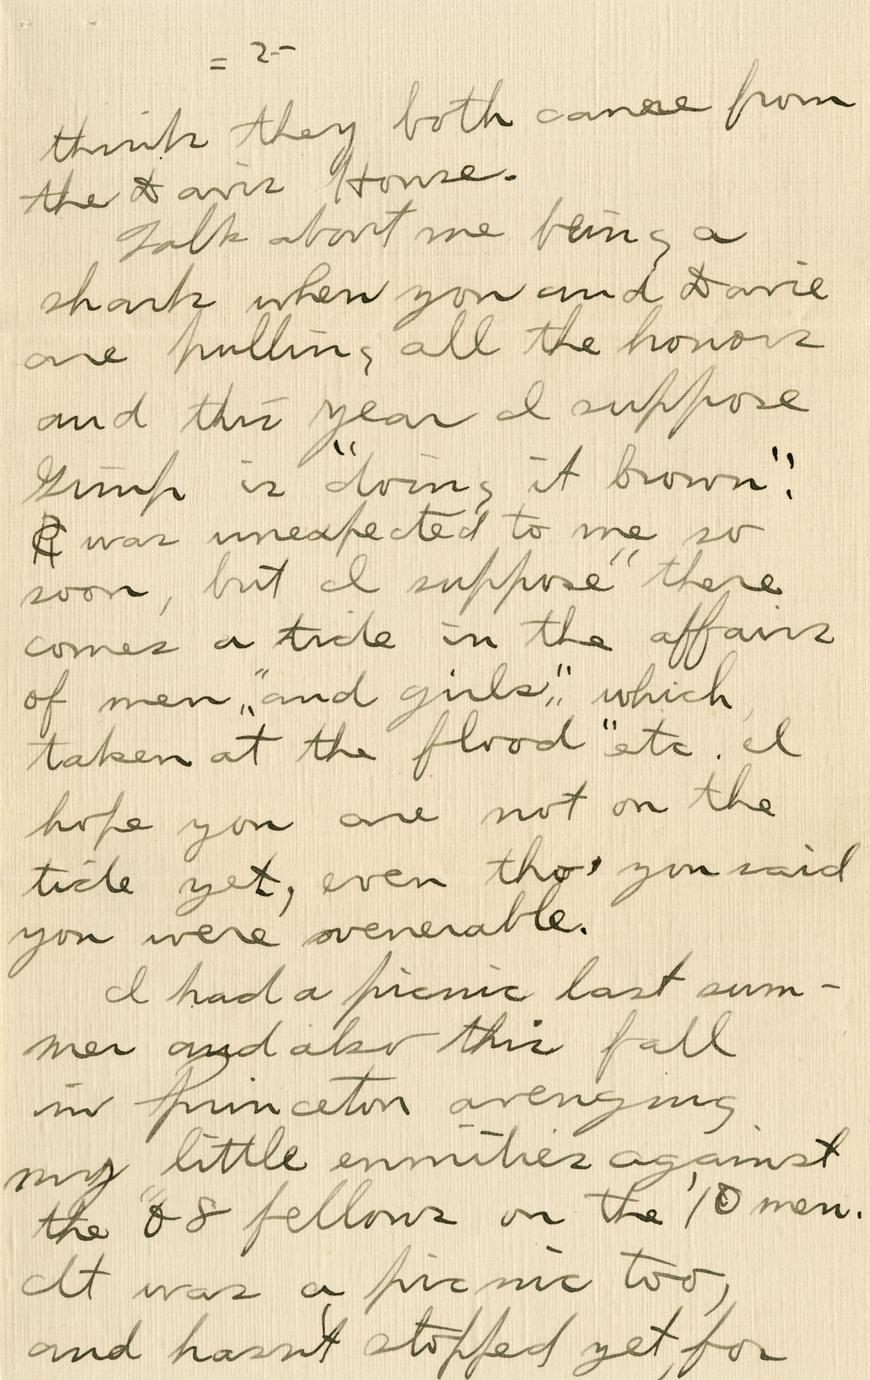 = 2 -
think they both came from
the Davis House.
Talk about me being a
shark when you and Davie
are pulling all the honors
and this year I suppose
Gimp is "doing it brown"!
It was unexpected to me so
soon, but I suppose "there
comes a tide in the affairs
of men", "and girls", "which,
taken at the flood" etc. I
hope you are not on the
tide yet, even tho' you said
you were venerable.
I had a picnic last sum-
mer and also this fall
in Princeton avenging
my little enmities against
the '08 fellows on the '10 men.
It was a picnic too,
and hasn't stopped yet, for